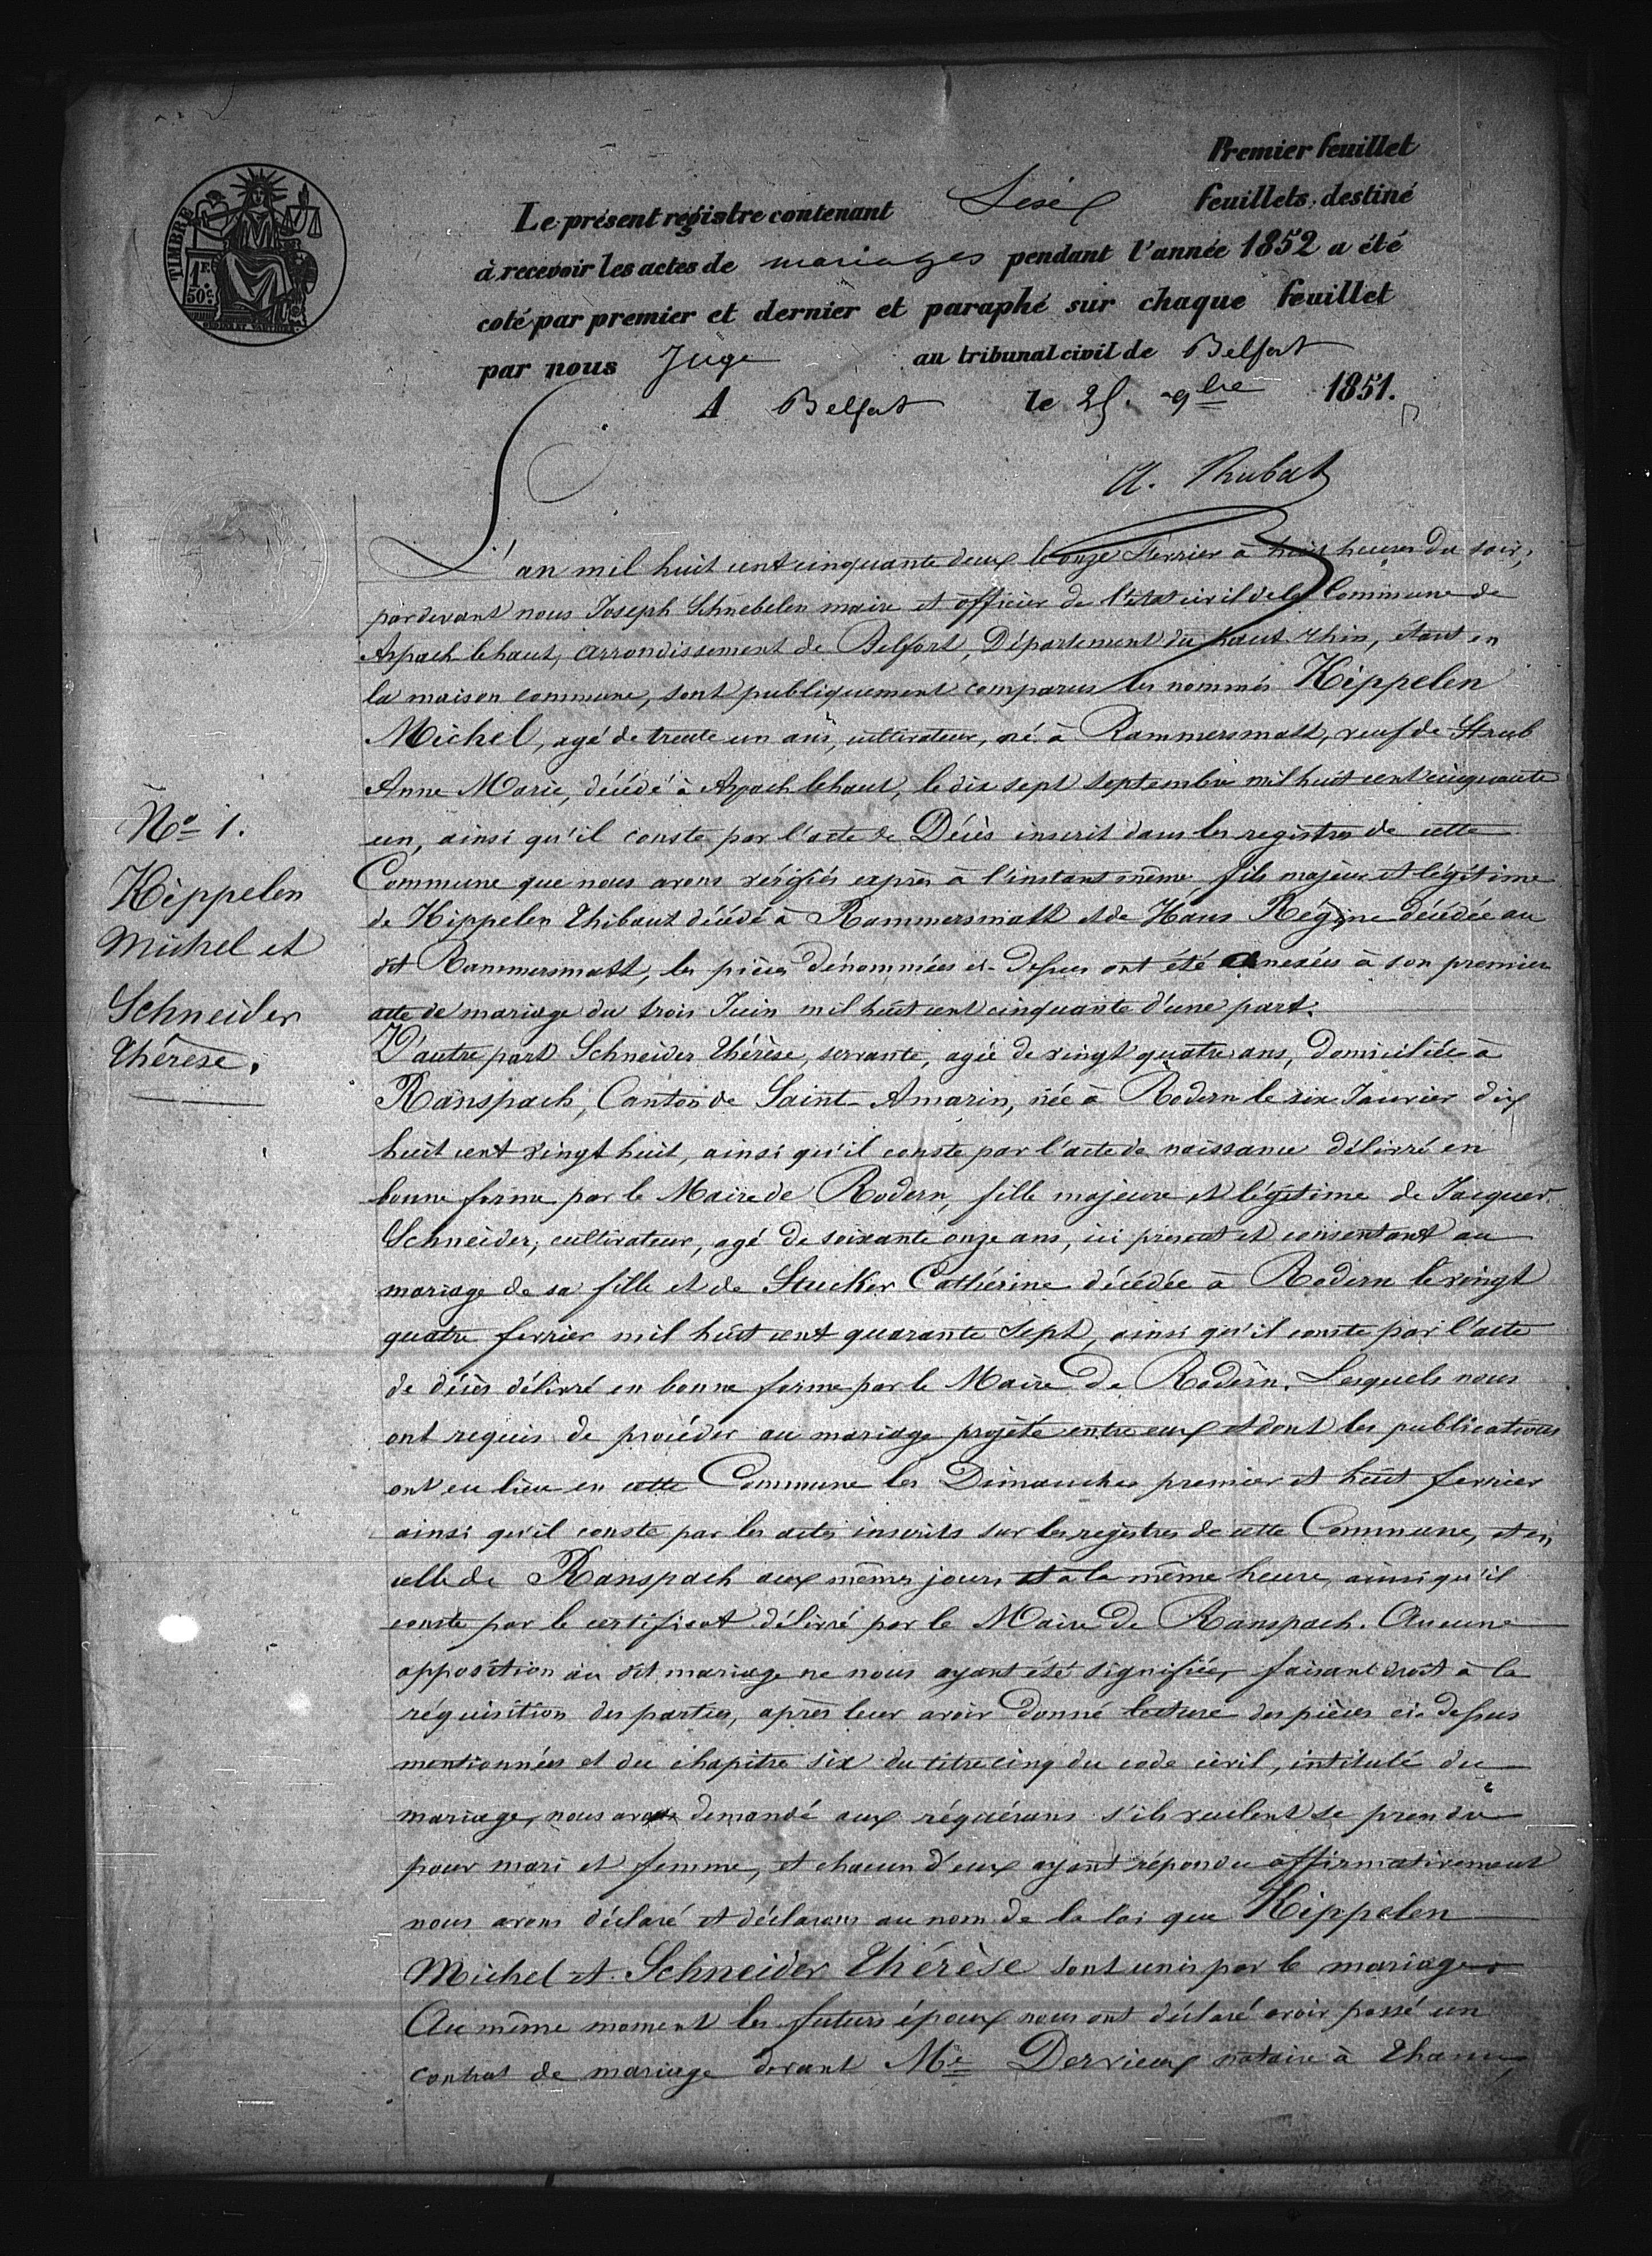 Premier feuillet
Le présent registre contenant feuillets, destiné
à recevoir les actes de mariages pendant l'année 1852 a été
coté par premier et dernier et paraphé sur chaque feuillet
par nous Juge au tribunal civil de Belfort
A Belfort le 25. 9bre 1851.
TIMBRE
1F.
50c.
L'an mil huit cent cinquante deux le onze Fevrier à huit heures du soir,
pardevant nous Joseph Schnebelen maire et officier de l'etat civil de la Commune de
Aspach lehaut, arrondissement de Belfort, Département du haut rhin, étant en
la maison commune, sont publiquement comparus les nommés Kippelen
Michel, agé de trente un ans, cultivateur, né à Rammersmatt, veuf de Straub
Anne Marie, décédé à Aspach lehaut, le dix sept Septembre mil huit cent cinquante
un, ainsi qu'il conste par l'acte de Décès inscrit dans les registres de cette
Commune que nous avons vérifiés exprès à l'instant même, fils majeur et légitime
de Kippelen Thibaut décédé à Rammersmatt et de Hans Régine décédée au
dit Rammersmatt, les pièces dénommées ci-dessus ont été anexées à son premier
acte de mariage du trois Juin mil huit cent cinquante d'une part.
D'autre part Schneider Thérèse, servante, agée de vingt quatre ans, domiciliée à
Ranspach, Canton de Saint-Amarin, née à Rodern le six Janvier dix
huit cent vingt huit, ainsi qu'il conste par l'acte de naissance délivré en
bonne forme par le Maire de Rodern, fille majeure et légitime de Jacques
Schneider, cultivateur, agé de soixante onze ans, ici présent et consentant au
mariage de sa fille et de Stucker Cathérine décédée à Rodern le vingt
quatre fevrier mil huit cent quarante Sept, ainsi qu'il conste par l'acte
de décès délivré en bonne forme par le Maire de Rodern. Lesquels nous
ont requis de procéder au mariage projeté entre eux et dont les publications
ont eu lieu en cette Commune les Dimanches premier et huit fevrier
ainsi qu'il conste par les actes inscrits sur les registres de cette Commune, et en
celle de Ranspach aux mêmes jours et à la même heure, ainsi qu'il
conste par le certificat délivré par le Maire de Ranspach. Aucune
opposition au dit mariage ne nous ayant été signifiée, faisant droit à la
réquisition des parties, après leur avoir donné lecture des pièces ci-dessus
mentionnées et du chapitre six du titre cinq du code civil, intitulé du
mariage, nous avons demandé aux réquérans s'ils veulent se prendre
pour mari et femme, et chacun d'eux ayant répondu affirmativement
nous avons déclaré et déclarons au nom de la loi que Kippelen
Michel et Schneider Thérèse sont unis par le mariage.
Au même moment les futurs époux nous ont déclaré avoir passé un
contrat de mariage devant Me Dervieux notaire à Thann,
No 1.
Kippelen
Michel et
Schneider
Thérèse.